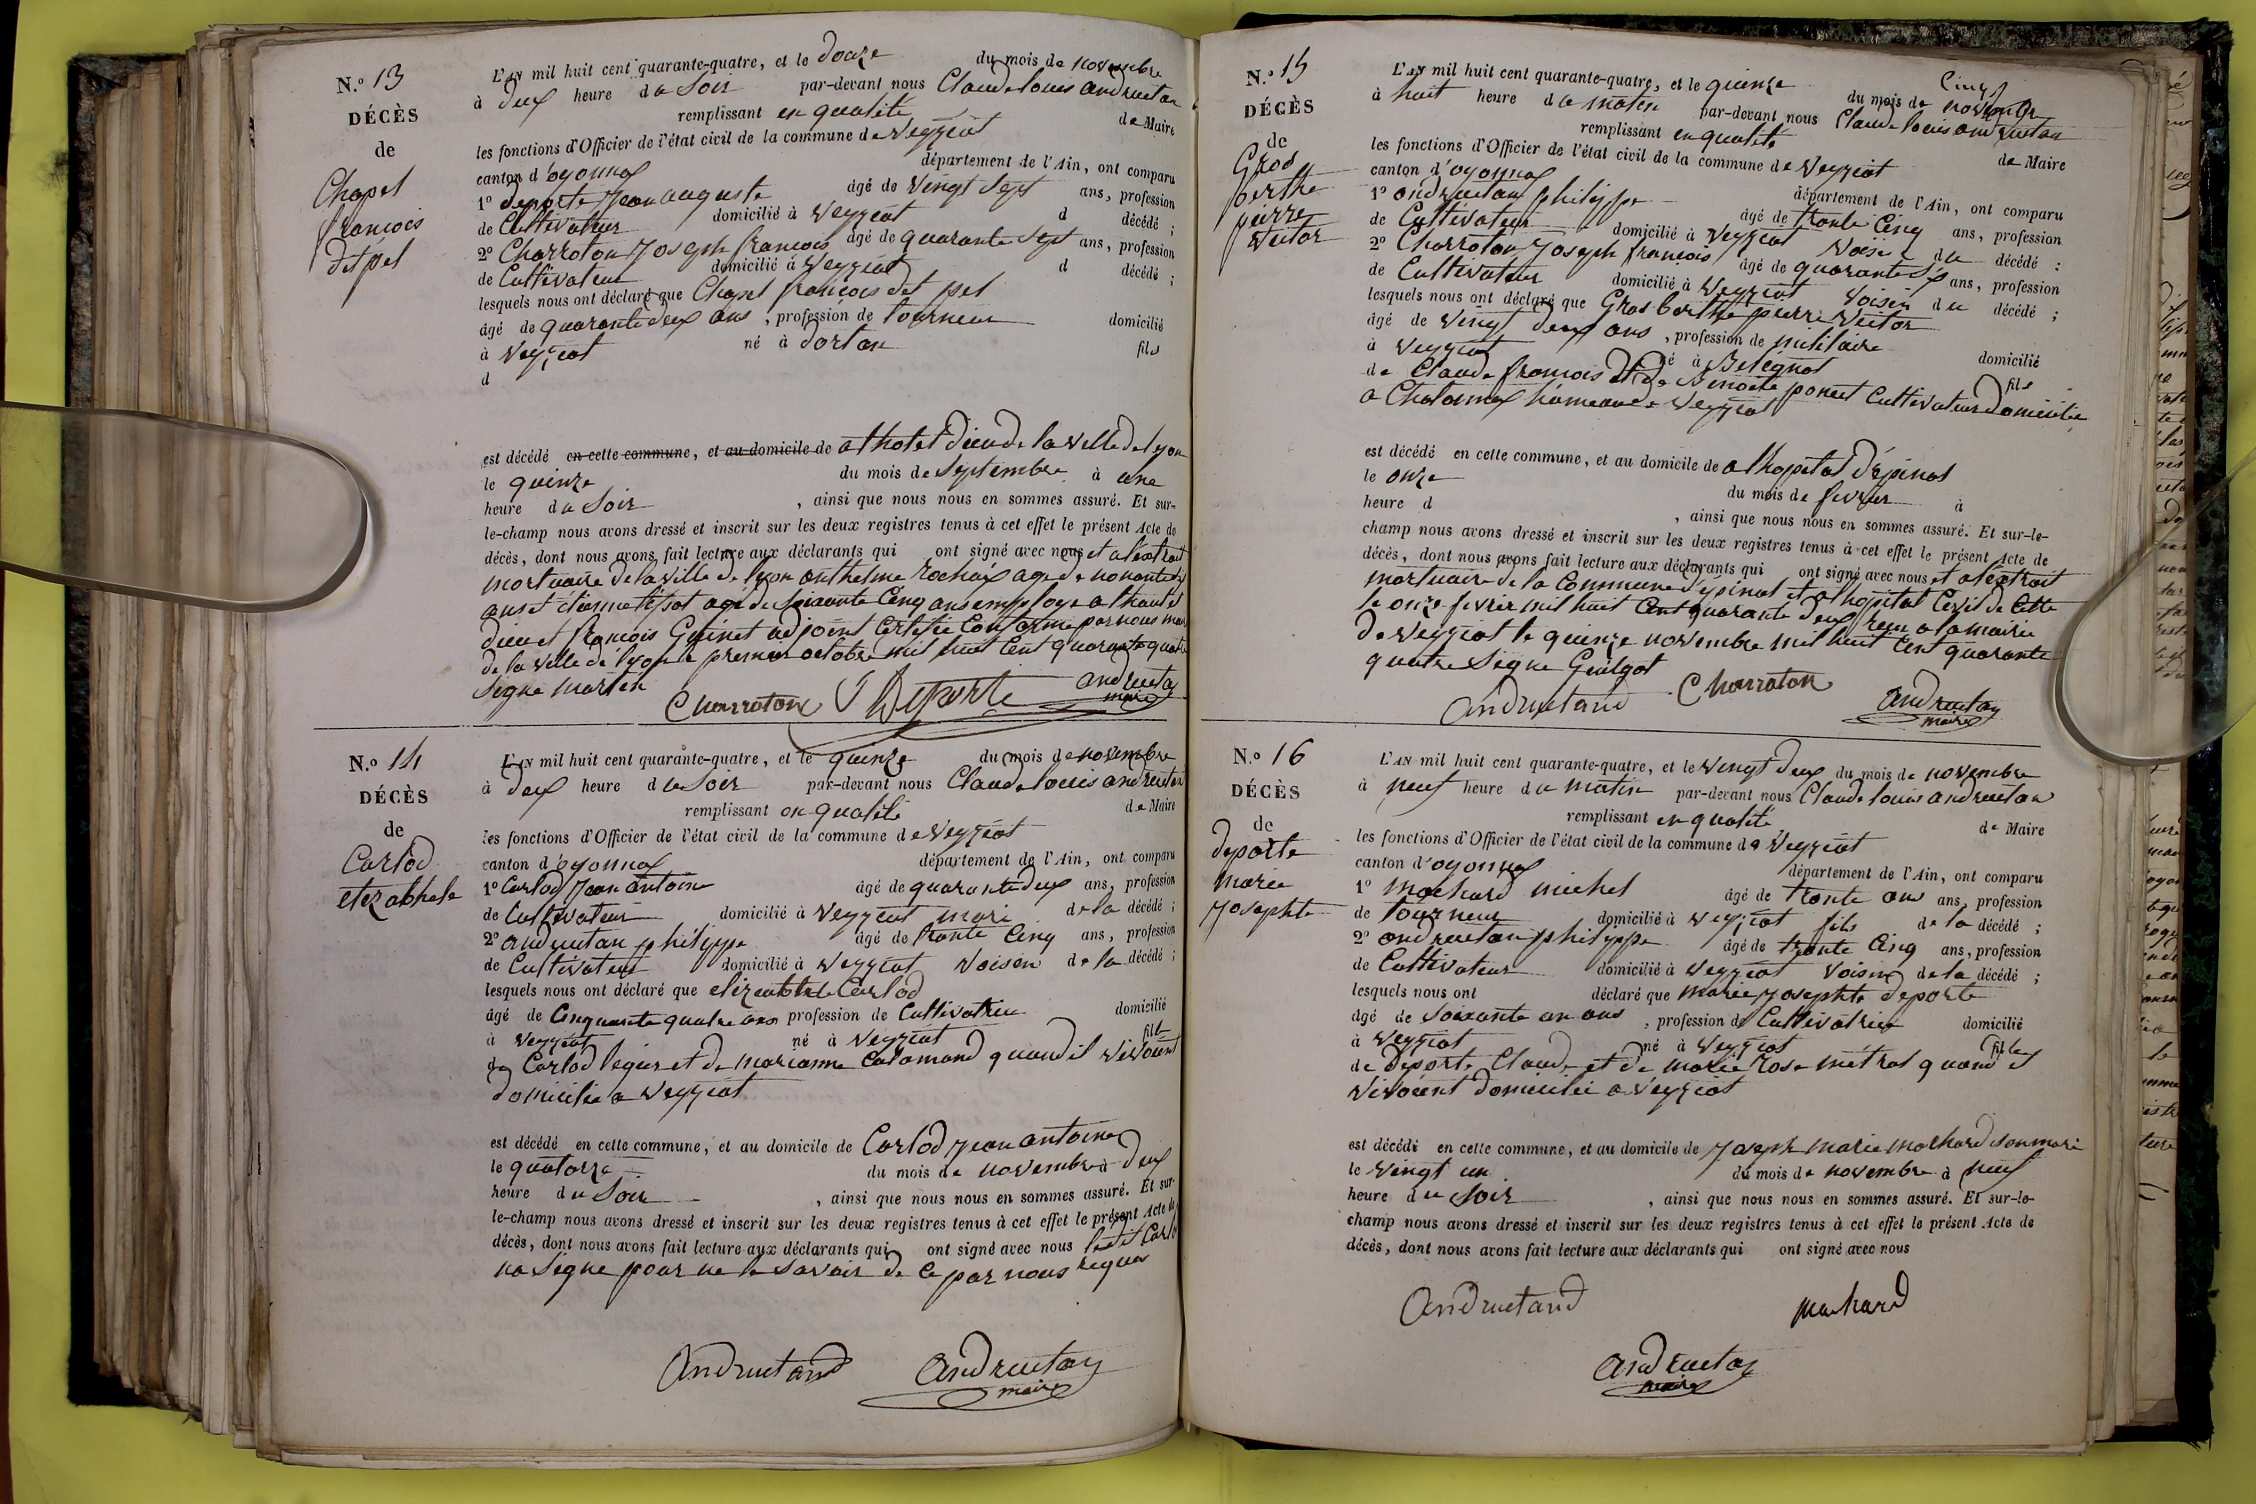 N.º 13
DÉCÈS
de
Chapel
francois
dit pel
L'AN mil huit cent quarante-quatre, et le douze du mois de novembre
à deux heure du Soir par-devant nous Claude louis andruetan
remplissant en qualité de Maire
les fonctions d'Officier de l'état civil de la commune de veyziat
canton d'oyonnax département de l'Ain, ont comparu
1º deporte jean auguste âgé de vingt Sept ans, profession
de Cultivateur domicilié à veyziat d décédé ;
2º Charroton joseph francois âgé de quarante Sept ans, profession
de Cultivateur domicilié à veyziat d décédé ;
lesquels nous ont déclaré que Chapel francois dit pel
âgé de quarante deux ans, profession de tourneur domicilié
à veyziat né à dortan fils
d
est décédé en cette commune, et au domicile de a lhotel dieu de la ville de lyon
le quinze du mois de Septembre à une
heure du Soir, ainsi que nous nous en sommes assuré. Et sur-
le-champ nous avons dressé et inscrit sur les deux registres tenus à cet effet le présent Acte de
décès, dont nous avons fait lecture aux déclarants qui ont signé avec nous et a lextrait
mortuaire de la ville de lyon anthelme rochaix age de nonante
ans et étienne tissot agé de Soixante Cinq ans employe a lhautel
dieu et francois Guinet adjoint Certifie Conforme par nous maire
de la ville de lyon le premier octobre mil huit Cent quarante quatre
Signe martin
Charroton Deporte andruetan
maire
N.º 14
DÉCÈS
de
Carlod
elizabhete
L'AN mil huit cent quarante-quatre, et le quinze du mois de novembre
à deux heure du Soir par-devant nous Claude louis andruetan
remplissant en qualité de Maire
les fonctions d'Officier de l'état civil de la commune de veyziat
canton d'oyonnax département de l'Ain, ont comparu
1º Carlod jean antoine âgé de quarante deux ans, profession
de Cultivateur domicilié à veyziat mari de la décédé ;
2º andruetan philippe âgé de trante Cinq ans, profession
de Cultivateur domicilié à veyziat voisin de la décédé ;
lesquels nous ont déclaré que Carlod
âgé de Cinquante quatre ans profession de Cultivatrice domicilié
à veyziat né à veyziat fille
de Carlod legier et de marianne Calamand quand il vivoient
domicilié a veyziat
est décédé en cette commune, et au domicile de Carlod jean antoine
le quatorze du mois de novembre à deux
heure du Soir, ainsi que nous nous en sommes assuré. Et sur-
le-champ nous avons dressé et inscrit sur les deux registres tenus à cet effet le présent Acte de
décès, dont nous avons fait lecture aux déclarants qui ont signé avec nous ledit Carlod
na Signe pour ne le Savoir de Ce par nous requis
andruetand andruetan
maire
N.º 15
DÉCÈS
de
Gros
perthe
pierre
victor
L'AN mil huit cent quarante-quatre, et le quinze du mois de novembre
à huit heure du matin par-devant nous Claude louis andruetan
remplissant en qualité de Maire
les fonctions d'Officier de l'état civil de la commune de veyziat
canton d'oyonnax département de l'Ain, ont comparu
1º andruetan philippe âgé de trante Cinq ans, profession
de Cultivateur domicilié à veyziat voisin du décédé ;
2º Charroton joseph francois âgé de quarante Sept ans, profession
de Cultivateur domicilié à veyziat voisin du décédé ;
lesquels nous ont déclaré que Gros berthe pierre victor
âgé de vingt deux ans, profession de militaire
à veyziat né à Belégnat domicilié
de Claude francois et de ponset Cultivateur domicilie fils
a Chatonnax hameau de veyziat
est décédé en cette commune, et au domicile de a lhopital d'épinal
le onze du mois de fevrier à
heure d, ainsi que nous nous en sommes assuré. Et sur-le-
champ nous avons dressé et inscrit sur les deux registres tenus à cet effet le présent Acte de
décès, dont nous avons fait lecture aux déclarants qui ont signé avec nous et a lextrait
mortuaire de la Commune d'épinal et a lhopital Civil de Cette
le onze fevrier mil huit Cent quarante deux reçu a la mairie
de veyziat le quinze novembre mil huit Cent quarante
quatre Signe Guilgot
andruetand Charroton andruetan
maire
N.º 16
DÉCÈS
de
deporte
marie
josephte
L'AN mil huit cent quarante-quatre, et le vingt deux du mois de novembre
à neuf heure du matin par-devant nous Claude louis andruetan
remplissant en qualité de Maire
les fonctions d'Officier de l'état civil de la commune de veyziat
canton d'oyonnax département de l'Ain, ont comparu
1º machard michel âgé de trante ans ans, profession
de tourneur domicilié à veyziat fils de la décédé ;
2º andruetan philippe âgé de trante Cinq ans, profession
de Cultivateur domicilié à veyziat voisin de la décédé ;
lesquels nous ont déclaré que marie josephte deporte
âgé de soixante un ans, profession de Cultivatrice domicilié
à veyziat né à veyziat fille
de deporte Claude et de marie rose métral quand il
vivoient domicilié a veyziat
est décédé en cette commune, et au domicile de joseph marie machard son mari
le vingt un du mois de novembre à neuf
heure du Soir, ainsi que nous nous en sommes assuré. Et sur-le-
champ nous avons dressé et inscrit sur les deux registres tenus à cet effet le présent Acte de
décès, dont nous avons fait lecture aux déclarants qui ont signé avec nous
andruetand machard
andruetan
maire